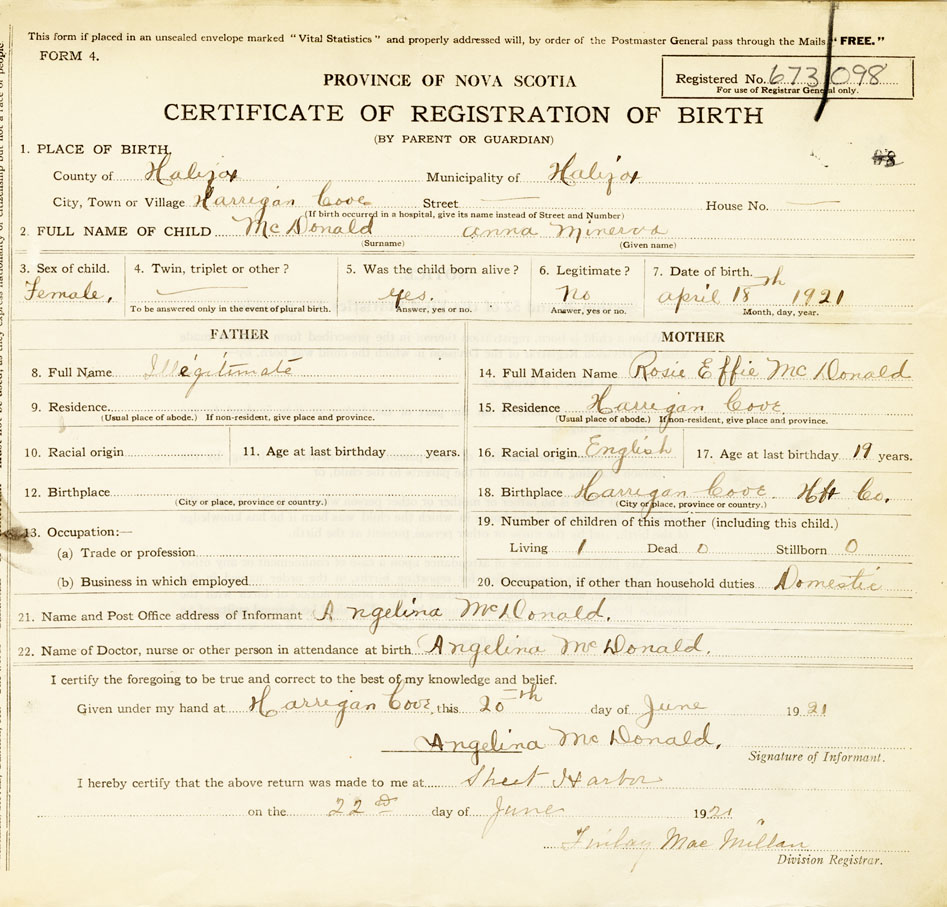 This form if placed in an unsealed envelope marked "Vital Statistics" and properly addressed will, by order of the Postmaster General pass through the Mails "FREE."
FORM 4.
PROVINCE OF NOVA SCOTIA
Registered No. 673 098
For use of Registrar General only.
CERTIFICATE OF REGISTRATION OF BIRTH
(BY PARENT OR GUARDIAN)
1. PLACE OF BIRTH,
County of Halifax Municipality of Halifax
City, Town or Village Harrigan Cove Street — House No. —
(If birth occurred in a hospital, give its name instead of Street and Number)
2. FULL NAME OF CHILD McDonald Anna Minerva
(Surname) (Given name)
3. Sex of child. 4. Twin, triplet or other? 5. Was the child born alive? 6. Legitimate? 7. Date of birth.
Female, — Yes. No April 18th 1921
To be answered only in the event of plural birth. Answer, yes or no. Answer, yes or no. Month, day, year.
FATHER MOTHER
8. Full Name Illegitimate 14. Full Maiden Name Rosie Effie McDonald
9. Residence 15. Residence Harrigan Cove
(Usual place of abode.) If non-resident, give place and province. (Usual place of abode.) If non-resident, give place and province.
10. Racial origin 11. Age at last birthday years. 16. Racial origin English 17. Age at last birthday 19 years.
12. Birthplace 18. Birthplace Harrigan Cove Hfx Co.
(City or place, province or country.) (City or place, province or country.)
13. Occupation:— 19. Number of children of this mother (including this child.)
(a) Trade or profession Living 1 Dead 0 Stillborn 0
(b) Business in which employed 20. Occupation, if other than household duties Domestic
21. Name and Post Office address of Informant Angelina McDonald.
22. Name of Doctor, nurse or other person in attendance at birth Angelina McDonald.
I certify the foregoing to be true and correct to the best of my knowledge and belief.
Given under my hand at Harrigan Cove, this 20th day of June 1921
Angelina McDonald.
Signature of Informant.
I hereby certify that the above return was made to me at Sheet Harbor
on the 22nd day of June 1921
Finlay MacMillan
Division Registrar.